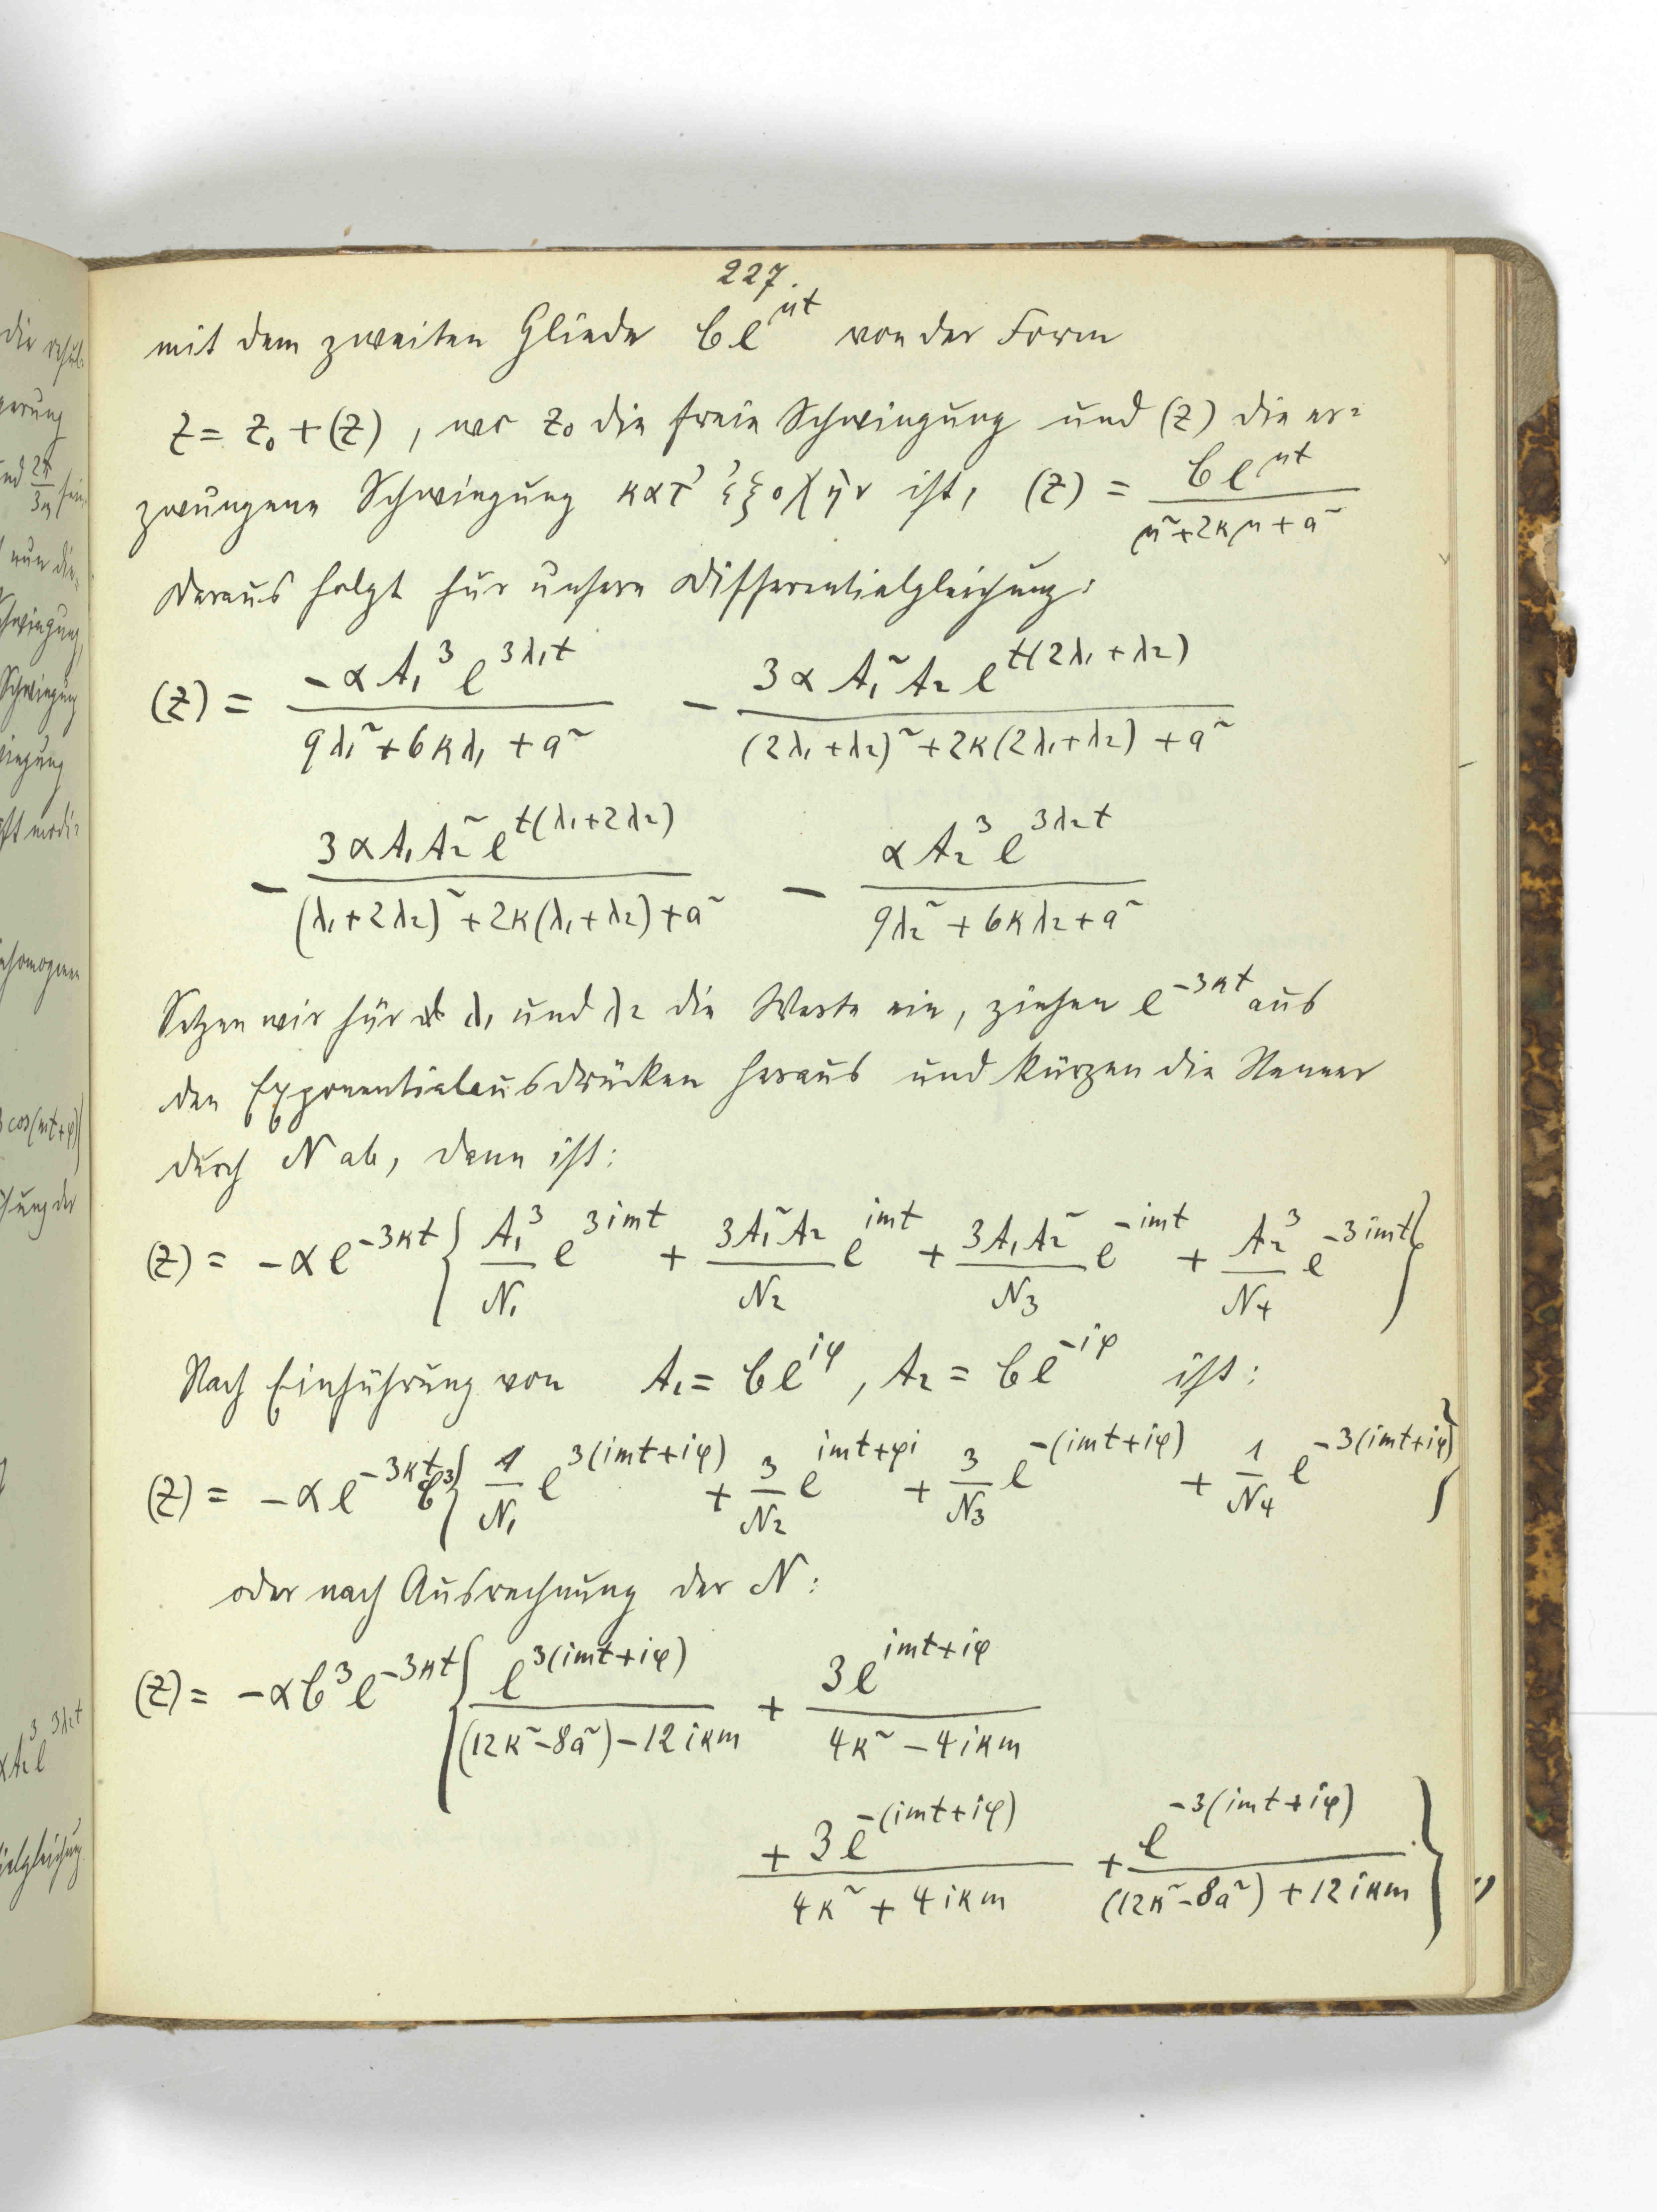 227.
mit dem zweiten Gliede C e^{μt} von der Form
z = z₀ + (z), wo z₀ die freie Schwingung und (z) die er=
zwungene Schwingung κατ' ἐξοχήν ist, (z) = C e^{μt} / (μ² + 2κμ + a²)
Daraus folgt für unsere Differentialgleichung:
(z) = −αA₁³ e^{3λ₁t} / (9λ₁² + 6κλ₁ + a²) − 3αA₁²A₂ e^{t(2λ₁+λ₂)} / ((2λ₁+λ₂)² + 2κ(2λ₁+λ₂) + a²)
− 3αA₁A₂² e^{t(λ₁+2λ₂)} / ((λ₁+2λ₂)² + 2κ(λ₁+λ₂) + a²) − αA₂³ e^{3λ₂t} / (9λ₂² + 6κλ₂ + a²)
Setzen wir für λ₁ und λ₂ die Werte ein, ziehen e^{−3κt} aus
den Exponentialausdrücken heraus und kürzen die Nenner
durch N ab, dann ist:
(z) = −αe^{−3κt} { A₁³/N₁ e^{3imt} + 3A₁²A₂/N₂ e^{imt} + 3A₁A₂²/N₃ e^{−imt} + A₂³/N₄ e^{−3imt} }
Nach Einführung von A₁ = C e^{iφ}, A₂ = C e^{−iφ} ist:
(z) = −αe^{−3κt} C³ { 1/N₁ e^{3(imt+iφ)} + 3/N₂ e^{imt+φi} + 3/N₃ e^{−(imt+iφ)} + 1/N₄ e^{−3(imt+iφ)} }
oder nach Ausrechnung der N:
(z) = −αC³e^{−3κt} { e^{3(imt+iφ)} / ((12κ²−8a²)−12iκm) + 3e^{imt+iφ} / (4κ²−4iκm)
+ 3e^{−(imt+iφ)} / (4κ²+4iκm) + e^{−3(imt+iφ)} / ((12κ²−8a²)+12iκm) }